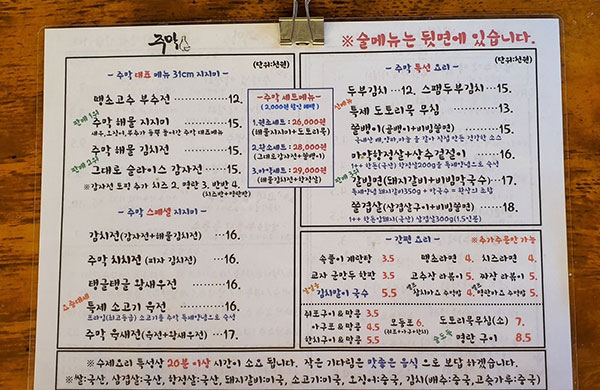 주막
※술메뉴는 뒷면에 있습니다.
(단위:천원)
- 주막 대표 메뉴 31cm 지지미 -
땡초고수 부추전 12.
판매 1위
주막 해물 지지미 15.
주막 해물 김치전 15.
판매 2위
그대로 슬라이스 감자전 15.
※감자전 토핑 추가 치즈 2, 명란 3, 반반 4.
(치즈반+명란반)
- 주막 스페셜 지지미 -
감치전(감자전+해물김치전) 16.
주막 치치전 (피자 김치전) 16.
탱글탱글 왕새우전 16.
특제 소고기 육전 16.
주막 육새전(육전+왕새우전) 17.
- 주막 세트메뉴 -
(2,000원 할인 혜택)
1.원초세트 : 26,000원
(해물지지미+도토리묵)
2.완초세트 : 28,000원
(그대로감자전+쫄뱅이)
3.아막세트 : 29,000원
(해물김치전+항정살)
(단위:천원)
- 주막 특선 요리 -
두부김치 12. 스팸두부김치 15.
특제 도토리묵 무침 13.
쫄뱅이(골뱅이+비빔쫄면) 15.
마약항정살+상추겉절이 16.
판매 3위
갈빔면(돼지갈비+비빔막국수) 17.
특제양념 돼지갈비350g + 막국수 = 환상의 조합
쫄겹살(삼겹살구이+비빔쫄면) 18.
1++ 한돈암돼지(국산) 삼겹살 300g(1.5인분)
- 간편 요리 -
※추가주문만 가능
속풀이 계란탕 3.5 땡초라면 4. 치즈라면 4.
교자 군만두 한판 3.5 고추장 라볶이 5. 짜장 라볶이 5.
김치말이 국수 5.5 참치마요 주먹밥 4. 명란마요 주먹밥 5.
쥐포구이 & 땅콩 3.5
아구포 & 땅콩 4.5
한치구이 & 땅콩 5.5
모듬포 6.
(쥐포+아구+한치)
도토리묵무침(소) 7.
명란 구이 8.5
※수제요리 특성상 20분 이상 시간이 소요 됩니다. 작은 기다림은 맛좋은 음식 으로 보답 하겠습니다.
※쌀:국산, 삼겹살:국산, 항정살:국산, 돼지갈비:미국, 소고기:미국, 오징어:중국, 김치(배추:중국, 고춧가루:중국)